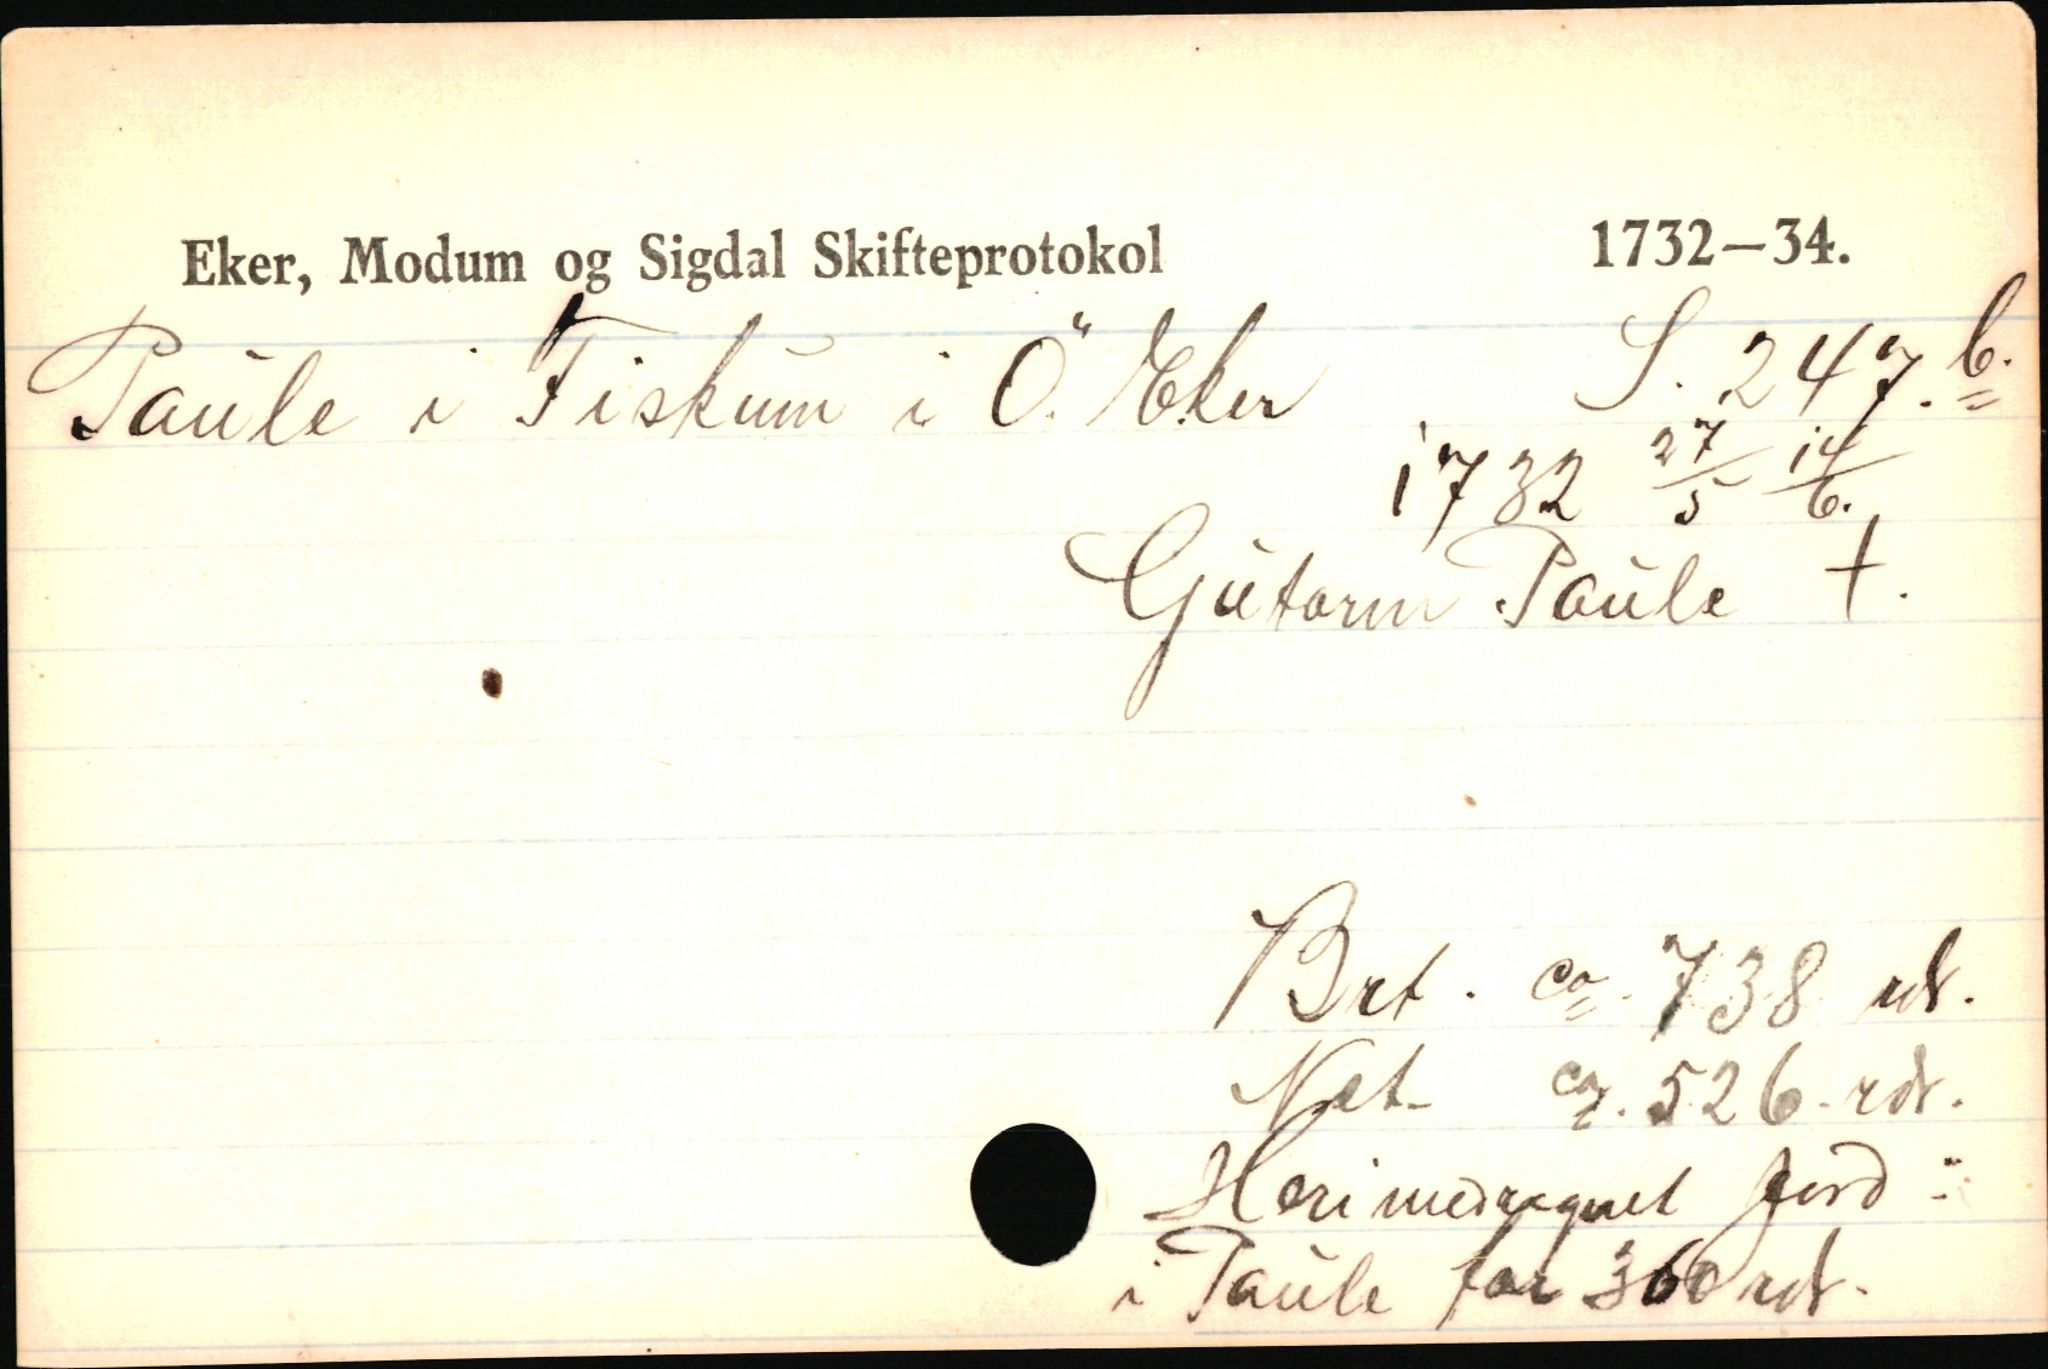 Eker, Modum og Sigdal Skifteprotokol 1732–34.
Paule i Fiskum i Ö. Eker S. 247.b.
1732 27/5 14/6.
Gutorm Paule †.
Brt. ca. 738 rdr.
Net- ca. 526 rdr.
Heri medregnet Jord:
i Paule for 360 rdr.